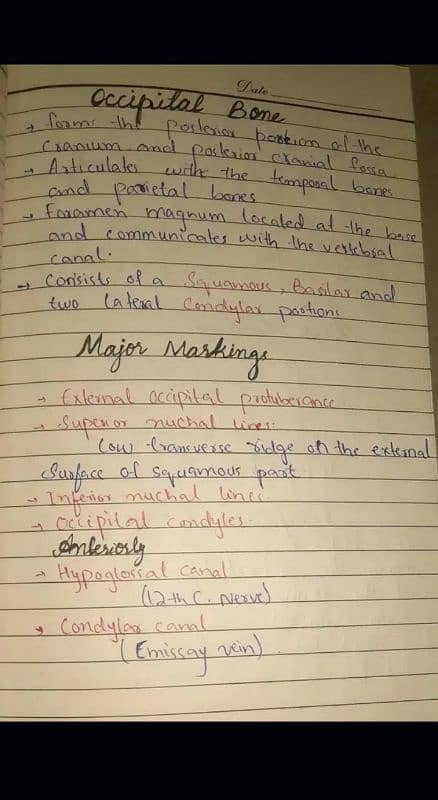 Date
Occipital Bone
→ forms the posterior portion of the
Cranium and posterior cranial fossa
→ Articulates with the temporal bones
and parietal bones
→ Foramen magnum located at the base
and communicates with the vertebral
canal.
→ Consists of a Squamous, Basilar and
two lateral Condylar portions
Major Markings
→ External occipital protuberance
→ Superior nuchal lines:
Low transverse ridge on the external
Surface of squamous part
→ Inferior nuchal lines
→ Occipital condyles
Anteriorly
→ Hypoglossal canal
(12th C. Nerve)
→ Condylar canal
(Emissay vein)